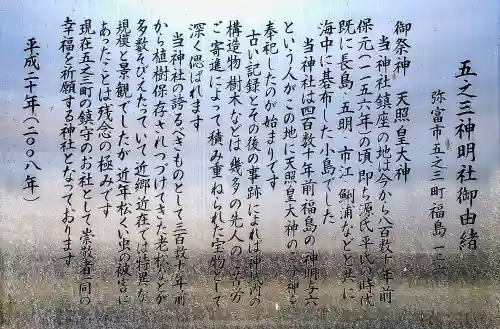 五之三神明社御由緒
弥富市五之三町福島一三六
御祭神 天照皇大神
当神社鎮座の地は今から八百数十年前
保元(一一五六年)の頃即ち源氏平氏の時代
既に長島、五明、市江、鯏浦などと共に
海中に碁布した小島でした
当神社は四百数十年前福島の神明与六
という人がこの地に天照皇大神のご分神を
奉祀したのが始まりです
古い記録とその後の事跡によれば神社の
構造物、樹木などは幾多の先人のご苦労
ご寄進によって積み重ねられた宝物として
深く偲ばれます
当神社の誇るべきものとして三百数十年前
から植樹保存されつづけてきた老松などが
多数そびえたっていて近郷近在では特異な
規模と景観でしたが近年松くい虫の被害に
あったことは残念の極みです
現在五之三町の鎮守のお社として崇敬者一同の
幸福を祈願する神社となっております
平成二十年(二〇〇八年)